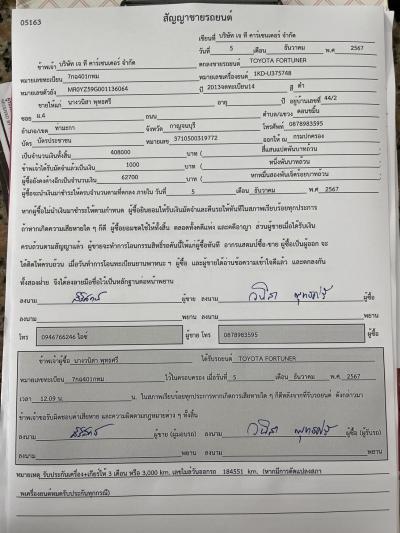 05163
สัญญาขายรถยนต์
เขียนที่ บริษัท เจ ที คาร์เซนเตอร์ จำกัด
วันที่ 5 เดือน ธันวาคม พ.ศ 2567
ข้าพเจ้า บริษัท เจ ที คาร์เซนเตอร์ จำกัด ตกลงขายรถยนต์ TOYOTA FORTUNER
หมายเลขทะเบียน 7กฉ401กทม หมายเลขเครื่องยนต์ 1KD-U375748
หมายเลขตัวถัง MR0YZ59G001136064 ปี 2013จดทะเบียน14 สี ดำ
ขายให้แก่ นางวนิสา พุทธศรี อายุ ปี อยู่บ้านเลขที่ 44/2
ซอย ม.4 ถนน ตำบล/แขวง ดอนขมิ้น
อำเภอ/เขต ท่ามะกา จังหวัด กาญจนบุรี โทรศัพท์ 0878983595
บัตร บัตรประชาชน หมายเลข 3710500319772 ออกให้ ณ กรมปกครอง
เป็นจำนวนเงินทั้งสิ้น 408000 บาท ( สี่แสนแปดพันบาทถ้วน
ข้าพเจ้าได้รับมัดจำแล้วเป็นเงิน 1000 บาท ( หนึ่งพันบาทถ้วน
ผู้ซื้อยังคงค้างอีกเป็นจำนวนเงิน 62700 บาท ( หกหมื่นสองพันเจ็ดร้อยบาทถ้วน
ผู้ซื้อจะนำเงินมาชำระให้ครบจำนวนตามที่ตกลง ภายใน วันที่ 5 เดือน ธันวาคม พ.ศ 2567
หากผู้ซื้อไม่นำเงินมาชำระให้ตามกำหนด ผู้ซื้อยินยอมให้ริบเงินมัดจำและคืนรถให้ทันทีในสภาพเรียบร้อยทุกประการ
ถ้าหากเกิดความเสียหายใด ๆ ก็ดี ผู้ซื้อยอมชดใช้ให้ทั้งสิ้น ตลอดทั้งคดีแพ่ง และคดีอาญา ส่วนผู้ขายเมื่อได้รับเงิน
ครบถ้วนตามสัญญาแล้ว ผู้ขายจะทำการโอนกรรมสิทธิ์รถคันนี้ให้แก่ผู้ซื้อทันที อากรแสตมป์ซื้อ-ขาย ผู้ซื้อเป็นผู้ออก จะ
ได้คิดให้ครบถ้วน เมื่อวันทำการโอนทะเบียนยานพาหนะ ฯ ผู้ซื้อ และผู้ขายได้อ่านข้อความเข้าใจดีแล้ว และตกลงกัน
ทั้งสองฝ่าย จึงได้ลงลายมือชื่อไว้เป็นหลักฐานต่อหน้าพยาน
ลงนาม ผู้ขาย ลงนาม วนิสา พุทธศรี ผู้ซื้อ
ลงนาม พยาน ลงนาม พยาน
โทร 0946766246 ไอซ์ ผู้ขาย โทร 0878983595 ผู้ซื้อ
ข้าพเจ้าผู้ซื้อ นางวนิสา พุทธศรี ได้รับรถยนต์ TOYOTA FORTUNER
หมายเลขทะเบียน 7กฉ401กทม ไว้ในครอบครอง เมื่อวันที่ 5 เดือน ธันวาคม พ.ศ 2567
เวลา 12.09 น. น. ในสภาพเรียบร้อยทุกประการหากเกิดการเสียหายใด ๆ ก็ดีหลังจากที่รับรถยนต์ ดังกล่าวมา
ข้าพเจ้าขอรับผิดชอบค่าเสียหาย และความผิดตามกฎหมายต่าง ๆ ทั้งสิ้น
ลงนาม ผู้ขาย (ผู้มอบรถ) ลงนาม วนิสา พุทธศรี ผู้ซื้อ (ผู้รับรถ)
ลงนาม พยาน ลงนาม พยาน
หมายเหตุ รับประกันเครื่อง+เกียร์ให้ 3 เดือน หรือ 3,000 km. เลขไมล์วันออกรถ 184551 km. (หากมีการดัดแปลงสภา
พเครื่องยนต์หมดรับประกันทุกกรณี)